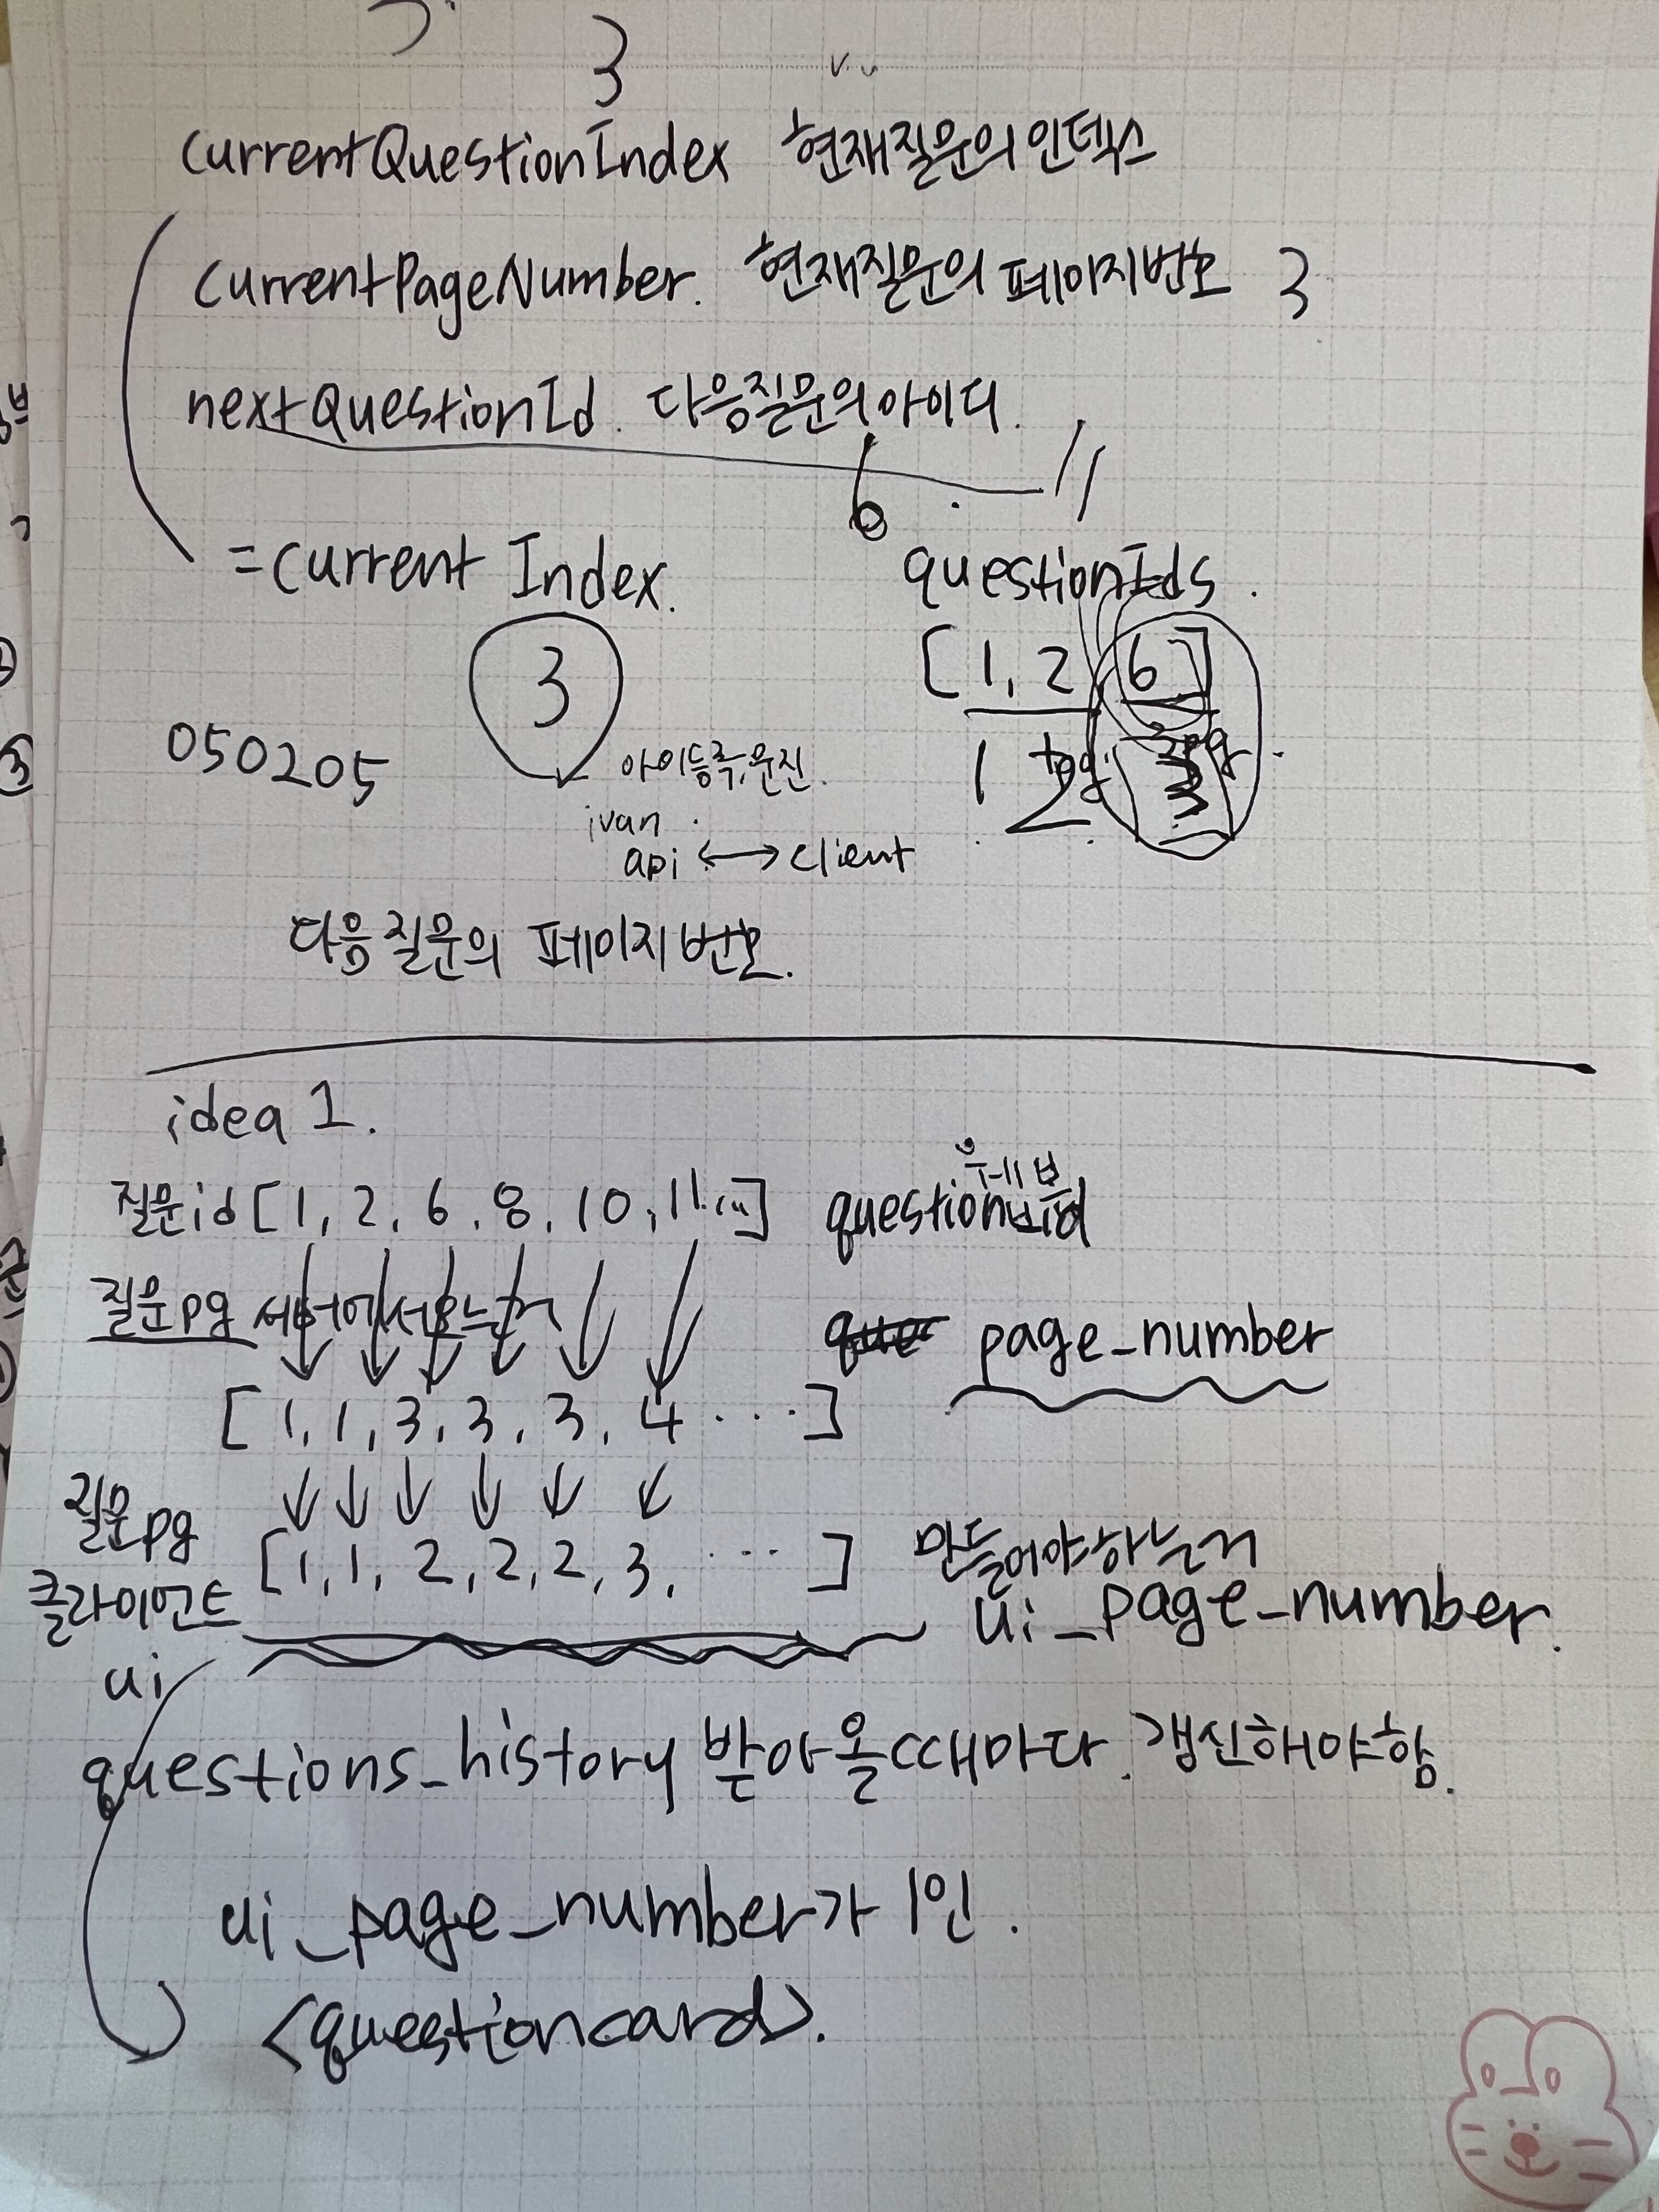 3
currentQuestionIndex 현재질문의인덱스
currentPageNumber. 현재질문의 페이지번호 3
nextQuestionId. 다음질문의아이디.
6 11
= current Index. questionIds.
3 [1, 2 6]
050205 아이등록, 문진. 1 2
ivan
api ↔ client
다음질문의 페이지번호.
idea 1.
질문id [1, 2, 6, 8, 10, 11, ...] question
질문pg 서버에서오는거 page_number
[1, 1, 3, 3, 3, 4 ...]
질문pg
클라이언트 [1, 1, 2, 2, 2, 3, ...] 만들어야하는거
ui ui_page_number.
questions_history 받아올때마다. 갱신해야함.
ui_page_number가 1인.
<questioncard>.